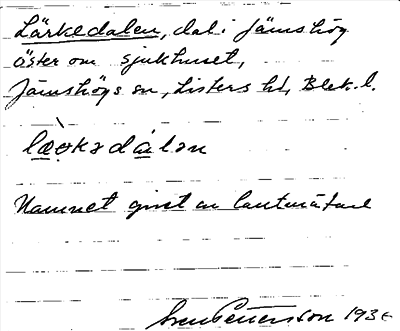 Lärkedalen, dal i Jämshög
öster om sjukhuset,
Jämshögs sn, Listers hd, Blek. l.
læ̀ɐkədálən
Namnet givet av lantmätare
Sven Pettersson 193